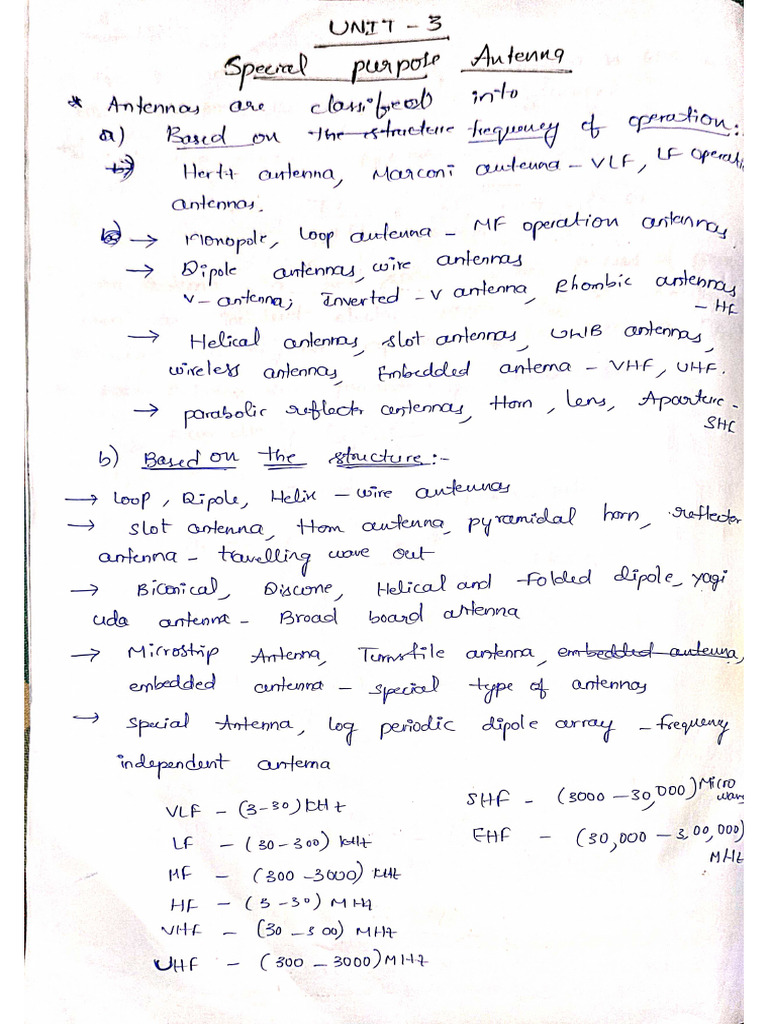 UNIT - 3
Special purpose Antenna
* Antennas are classified into
a) Based on the structure frequency of operation:
b) Hertz antenna, Marconi antenna - VLF, LF operation
antennas.
b) → Monopole, Loop antenna - MF operation antennas
→ Dipole antennas, wire antennas
V-antenna; Inverted-V antenna, Rhombic antennas
- HF
→ Helical antennas, slot antennas, UWB antennas,
wireless antennas, Embedded antenna - VHF, UHF.
→ parabolic reflector antennas, Horn, Lens, Aparture -
SHF
b) Based on the structure:-
→ Loop, Dipole, Helix - wire antennas
→ slot antenna, Horn antenna, pyramidal horn, reflector
antenna - travelling wave out
→ Biconical, Discone, Helical and Folded dipole, yagi
uda antenna - Broad board antenna
→ Microstrip Antenna, Turnstile antenna, embedded antenna,
embedded antenna - special type of antennas
→ Special Antenna, log periodic dipole array - frequency
independent antenna
VLF - (3-30) kHz
LF - (30-300) kHz
MF - (300-3000) kHz
HF - (3-30) MHz
VHF - (30-300) MHz
UHF - (300-3000) MHz
SHF - (3000-30,000) Micro
wave
EHF - (30,000-3,00,000)
MHz